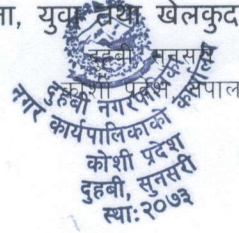 ा, युवा तथा खेलकुद
दुहबी, सुनसरी
कोशी प्रदेश नेपाल
दुहबी नगरपालिका
नगर कार्यपालिकाको कार्यालय
कोशी प्रदेश
दुहबी, सुनसरी
स्था: २०७३